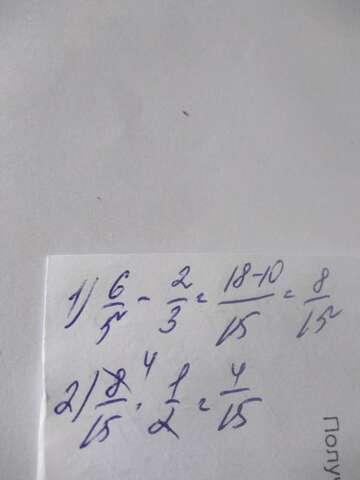 1) 6/5 - 2/3 = 18-10/15 = 8/15
2) 8/15 4 · 1/2 = 4/15
Получ